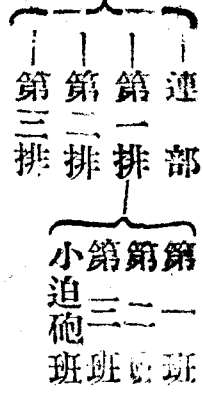 連部
第一排
第二排
第三排
第一班
第二班
第三班
小迫砲班